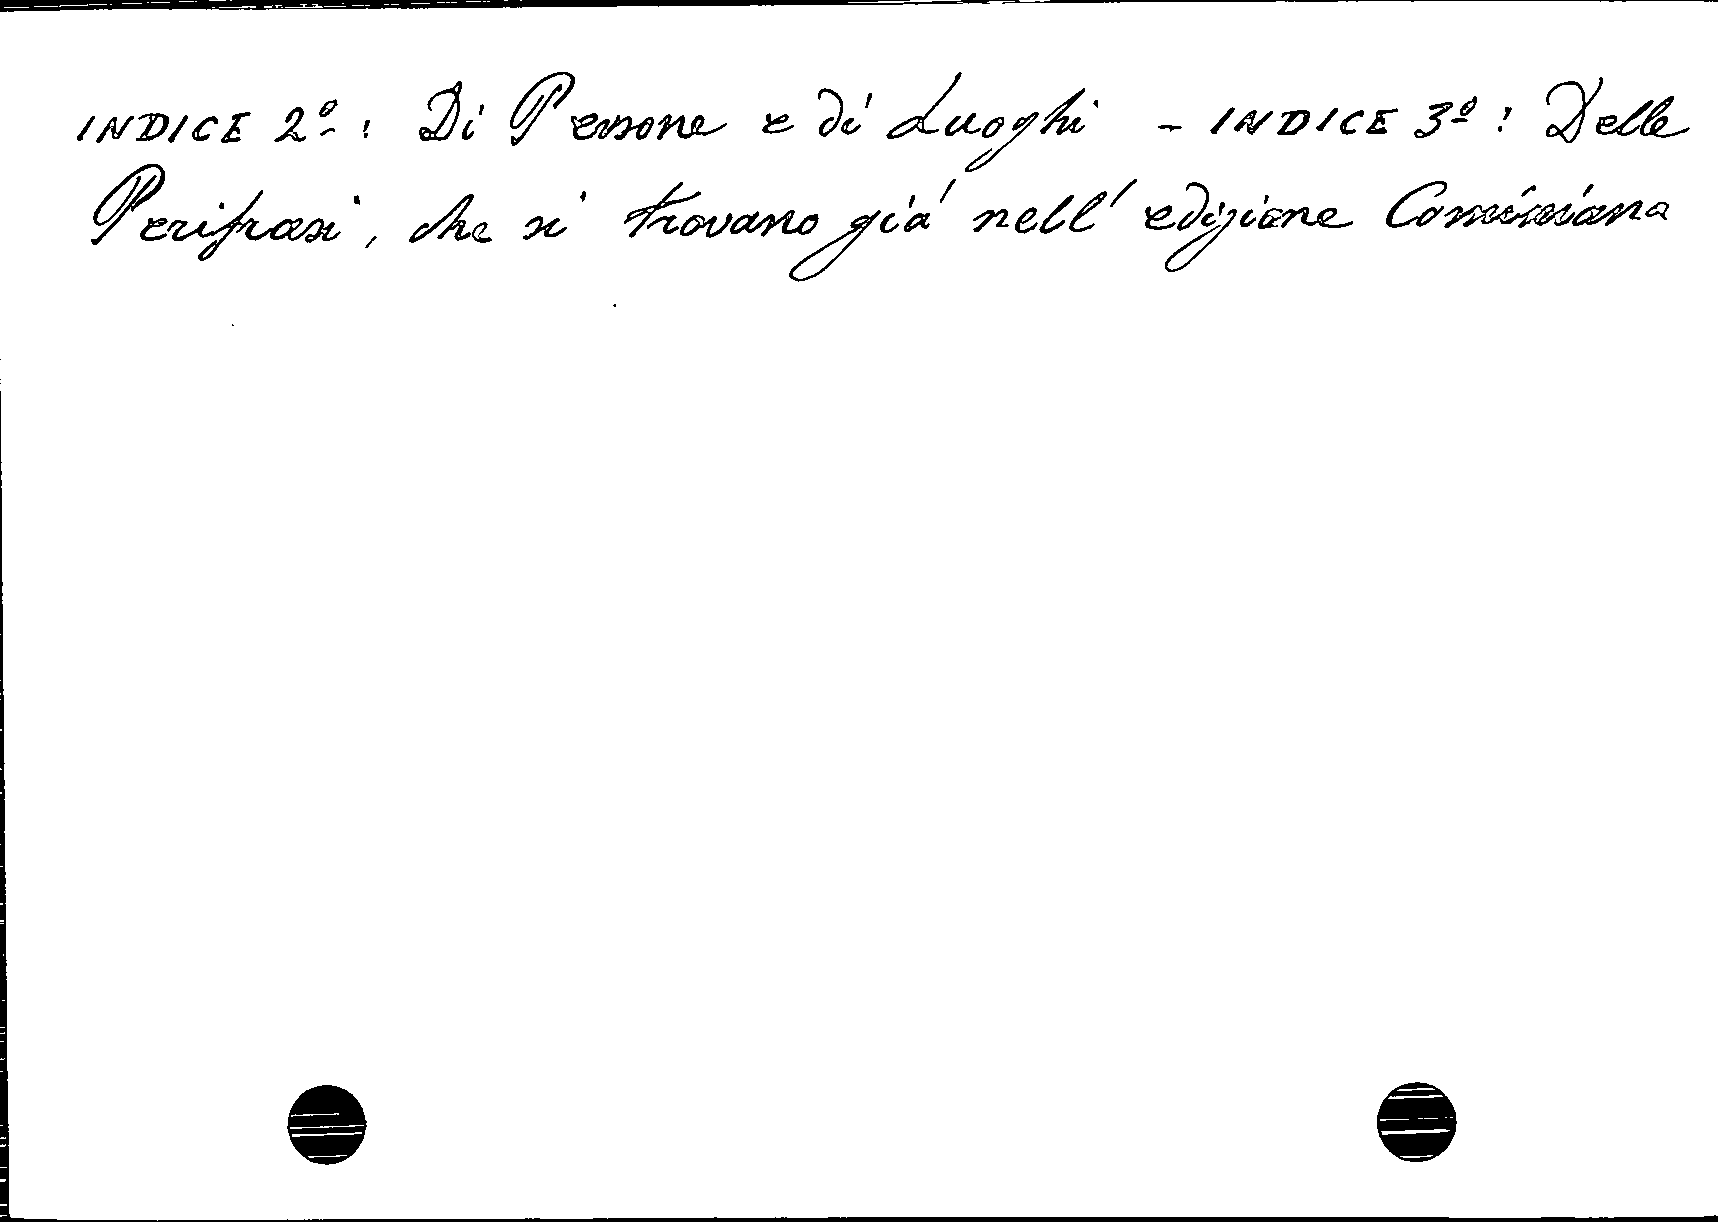 INDICE 2º: Di Persone e di Luoghi - INDICE 3º: Delle
Perifrasi, che si trovano già nell' edizione Cominiana